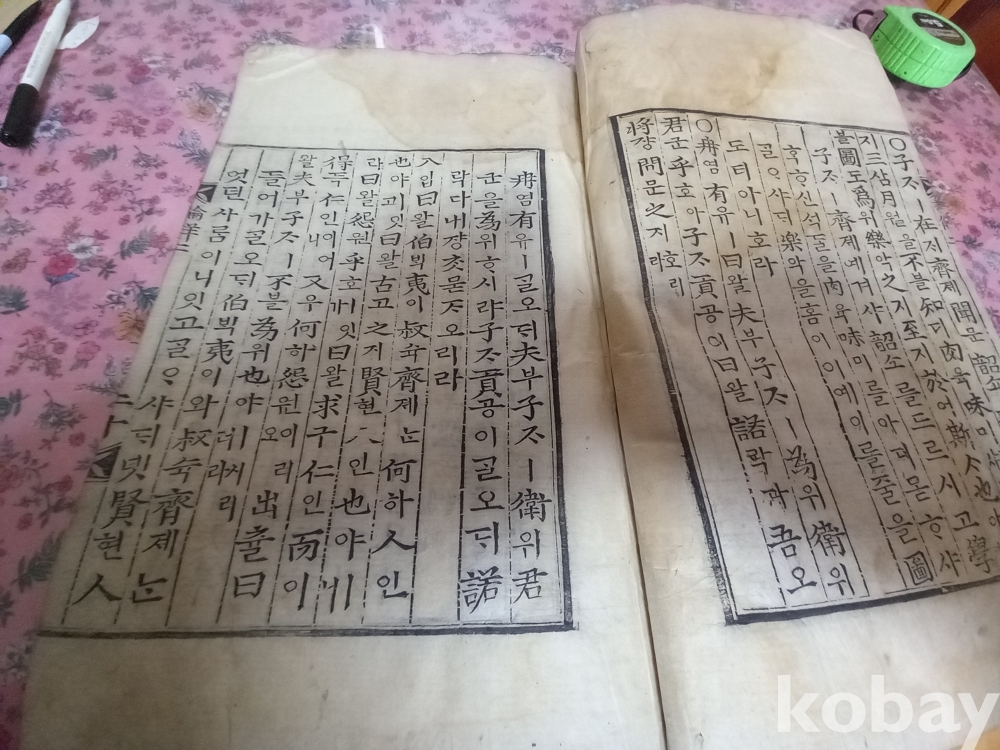 ○子ᄌᆞㅣ在ᄌᆡ齊제聞문韶쇼
지三삼月월을不블知디肉육味미
블圖도爲위樂악之지至지於어斯ᄉᆞ也야
子ᄌᆞㅣ齊제예겨샤韶쇼를드르시고學
ᄒᆞᆨᄒᆞ신석ᄃᆞᆯ을肉육味미를아디몯ᄒᆞ샤
ᄀᆞᆯᄋᆞ샤ᄃᆡ樂악을홈이이예이를줄을圖
도티아니호라
○冉염有유ㅣ曰왈夫부子ᄌᆞㅣ爲위衛위
君군乎호아子ᄌᆞ貢공이曰왈諾락다吾오
將쟝問문之지호리라
冉염有유ㅣᄀᆞᆯ오ᄃᆡ夫부子ᄌᆞㅣ衛위君
군을爲위ᄒᆞ시랴子ᄌᆞ貢공이ᄀᆞᆯ오ᄃᆡ諾
락다내쟝ᄎᆞᆺ묻ᄌᆞ오리라
入입曰왈伯ᄇᆡᆨ夷이叔슉齊제ᄂᆞᆫ何하人인
也야ㅣ잇고曰왈古고之지賢현人인也야ㅣ니
라曰왈怨원乎호ㅣ잇가曰왈求구仁인而이
得득仁인이어니又우何하怨원이리오出츌曰
왈夫부子ᄌᆞㅣ不블爲위也야
들어가ᄀᆞᆯ오ᄃᆡ伯ᄇᆡᆨ夷이와叔슉齊제ᄂᆞᆫ
엇던사ᄅᆞᆷ이니잇고ᄀᆞᆯᄋᆞ샤ᄃᆡ녯賢현人
kobay